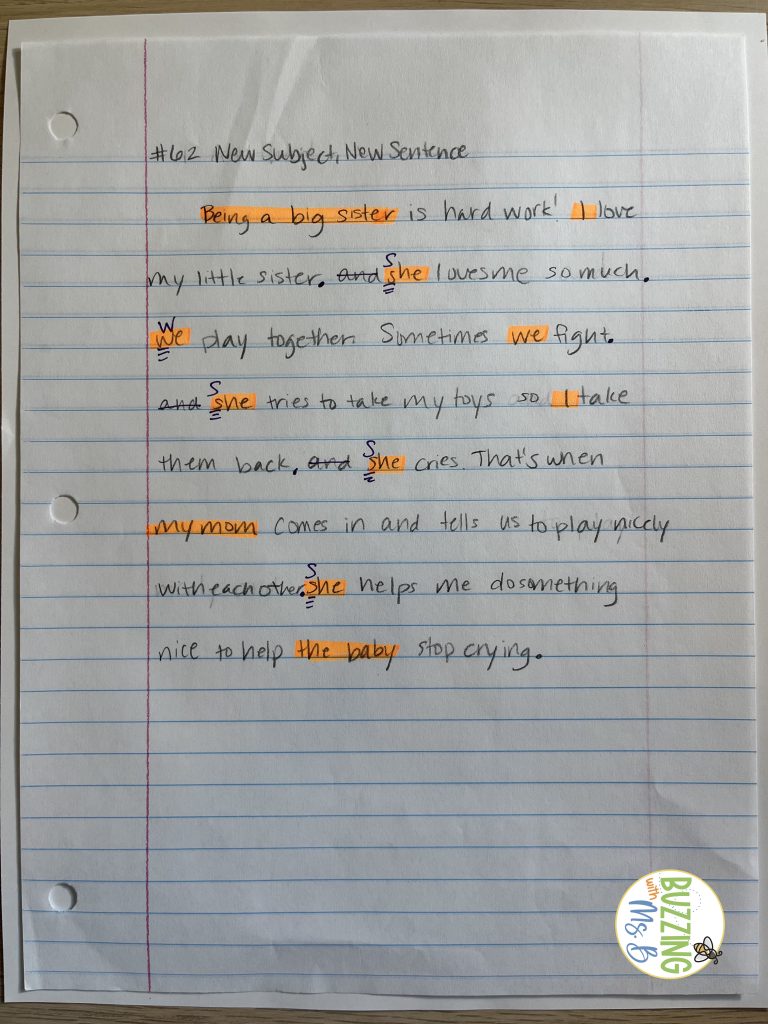 #62 New Subject, New Sentence
Being a big sister is hard work! I love
my little sister. and She loves me so much.
We play together. Sometimes we fight.
and She tries to take my toys so I take
them back. and She cries. That's when
my mom comes in and tells us to play nicely
with each other. She helps me do something
nice to help the baby stop crying.
BUZZING
with
Ms. B